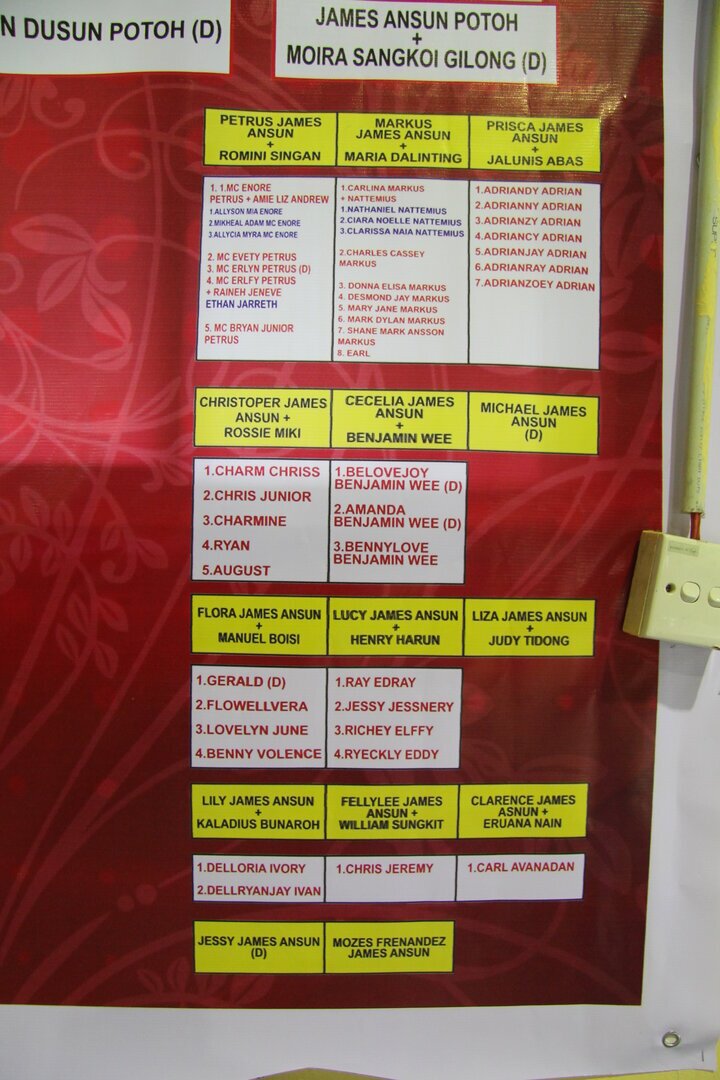 N DUSUN POTOH (D)
JAMES ANSUN POTOH
+
MOIRA SANGKOI GILONG (D)
PETRUS JAMES
ANSUN
+
ROMINI SINGAN
MARKUS
JAMES ANSUN
+
MARIA DALINTING
PRISCA JAMES
ANSUN
+
JALUNIS ABAS
1. 1.MC ENORE
PETRUS + AMIE LIZ ANDREW
1.ALLYSON MIA ENORE
2.MIKHEAL ADAM MC ENORE
3.ALLYCIA MYRA MC ENORE
2. MC EVETY PETRUS
3. MC ERLYN PETRUS (D)
4. MC ERLFY PETRUS
+ RAINEH JENEVE
ETHAN JARRETH
5. MC BRYAN JUNIOR
PETRUS
1.CARLINA MARKUS
+ NATTEMIUS
1.NATHANIEL NATTEMIUS
2.CIARA NOELLE NATTEMIUS
3.CLARISSA NAIA NATTEMIUS
2.CHARLES CASSEY
MARKUS
3. DONNA ELISA MARKUS
4. DESMOND JAY MARKUS
5. MARY JANE MARKUS
6. MARK DYLAN MARKUS
7. SHANE MARK ANSSON
MARKUS
8. EARL
1.ADRIANDY ADRIAN
2.ADRIANNY ADRIAN
3.ADRIANZY ADRIAN
4.ADRIANCY ADRIAN
5.ADRIANJAY ADRIAN
6.ADRIANRAY ADRIAN
7.ADRIANZOEY ADRIAN
CHRISTOPER JAMES
ANSUN +
ROSSIE MIKI
CECELIA JAMES
ANSUN
+
BENJAMIN WEE
MICHAEL JAMES
ANSUN
(D)
1.CHARM CHRISS
2.CHRIS JUNIOR
3.CHARMINE
4.RYAN
5.AUGUST
1.BELOVEJOY
BENJAMIN WEE (D)
2.AMANDA
BENJAMIN WEE (D)
3.BENNYLOVE
BENJAMIN WEE
FLORA JAMES ANSUN
+
MANUEL BOISI
LUCY JAMES ANSUN
+
HENRY HARUN
LIZA JAMES ANSUN
+
JUDY TIDONG
1.GERALD (D)
2.FLOWELLVERA
3.LOVELYN JUNE
4.BENNY VOLENCE
1.RAY EDRAY
2.JESSY JESSNERY
3.RICHEY ELFFY
4.RYECKLY EDDY
LILY JAMES ANSUN
+
KALADIUS BUNAROH
FELLYLEE JAMES
ANSUN +
WILLIAM SUNGKIT
CLARENCE JAMES
ASNUN +
ERUANA NAIN
1.DELLORIA IVORY
2.DELLRYANJAY IVAN
1.CHRIS JEREMY
1.CARL AVANADAN
JESSY JAMES ANSUN
(D)
MOZES FRENANDEZ
JAMES ANSUN